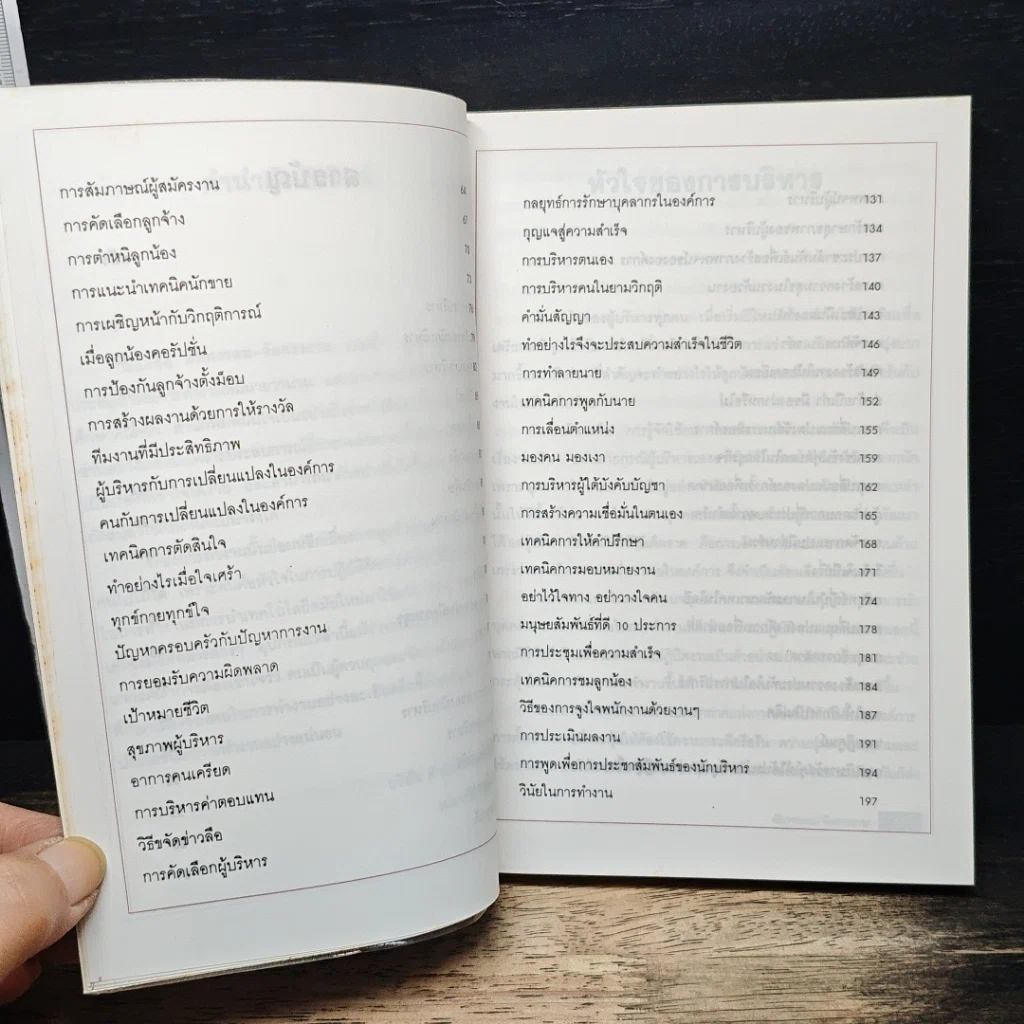 การสัมภาษณ์ผู้สมัครงาน 64
การคัดเลือกลูกจ้าง 67
การตำหนิลูกน้อง 70
การแนะนำเทคนิคนักขาย
การเผชิญหน้ากับวิกฤติการณ์
เมื่อลูกน้องคอรัปชั่น
การป้องกันลูกจ้างตั้งม็อบ
การสร้างผลงานด้วยการให้รางวัล
ทีมงานที่มีประสิทธิภาพ
ผู้บริหารกับการเปลี่ยนแปลงในองค์การ
คนกับการเปลี่ยนแปลงในองค์การ
เทคนิคการตัดสินใจ
ทำอย่างไรเมื่อใจเศร้า
ทุกข์กายทุกข์ใจ
ปัญหาครอบครัวกับปัญหาการงาน
การยอมรับความผิดพลาด
เป้าหมายชีวิต
สุขภาพผู้บริหาร
อาการคนเครียด
การบริหารค่าตอบแทน
วิธีขจัดข่าวลือ
การคัดเลือกผู้บริหาร
กลยุทธ์การรักษาบุคลากรในองค์การ 131
กุญแจสู่ความสำเร็จ 134
การบริหารตนเอง 137
การบริหารคนในยามวิกฤติ 140
คำมั่นสัญญา 143
ทำอย่างไรจึงจะประสบความสำเร็จในชีวิต 146
การทำลายนาย 149
เทคนิคการพูดกับนาย 152
การเลื่อนตำแหน่ง 155
มองคน มองเงา 159
การบริหารผู้ใต้บังคับบัญชา 162
การสร้างความเชื่อมั่นในตนเอง 165
เทคนิคการให้คำปรึกษา 168
เทคนิคการมอบหมายงาน 171
อย่าไว้ใจทาง อย่าวางใจคน 174
มนุษยสัมพันธ์ที่ดี 10 ประการ 178
การประชุมเพื่อความสำเร็จ 181
เทคนิคการชมลูกน้อง 184
วิธีของการจูงใจพนักงานด้วยงานๆ 187
การประเมินผลงาน 191
การพูดเพื่อการประชาสัมพันธ์ของนักบริหาร 194
วินัยในการทำงาน 197